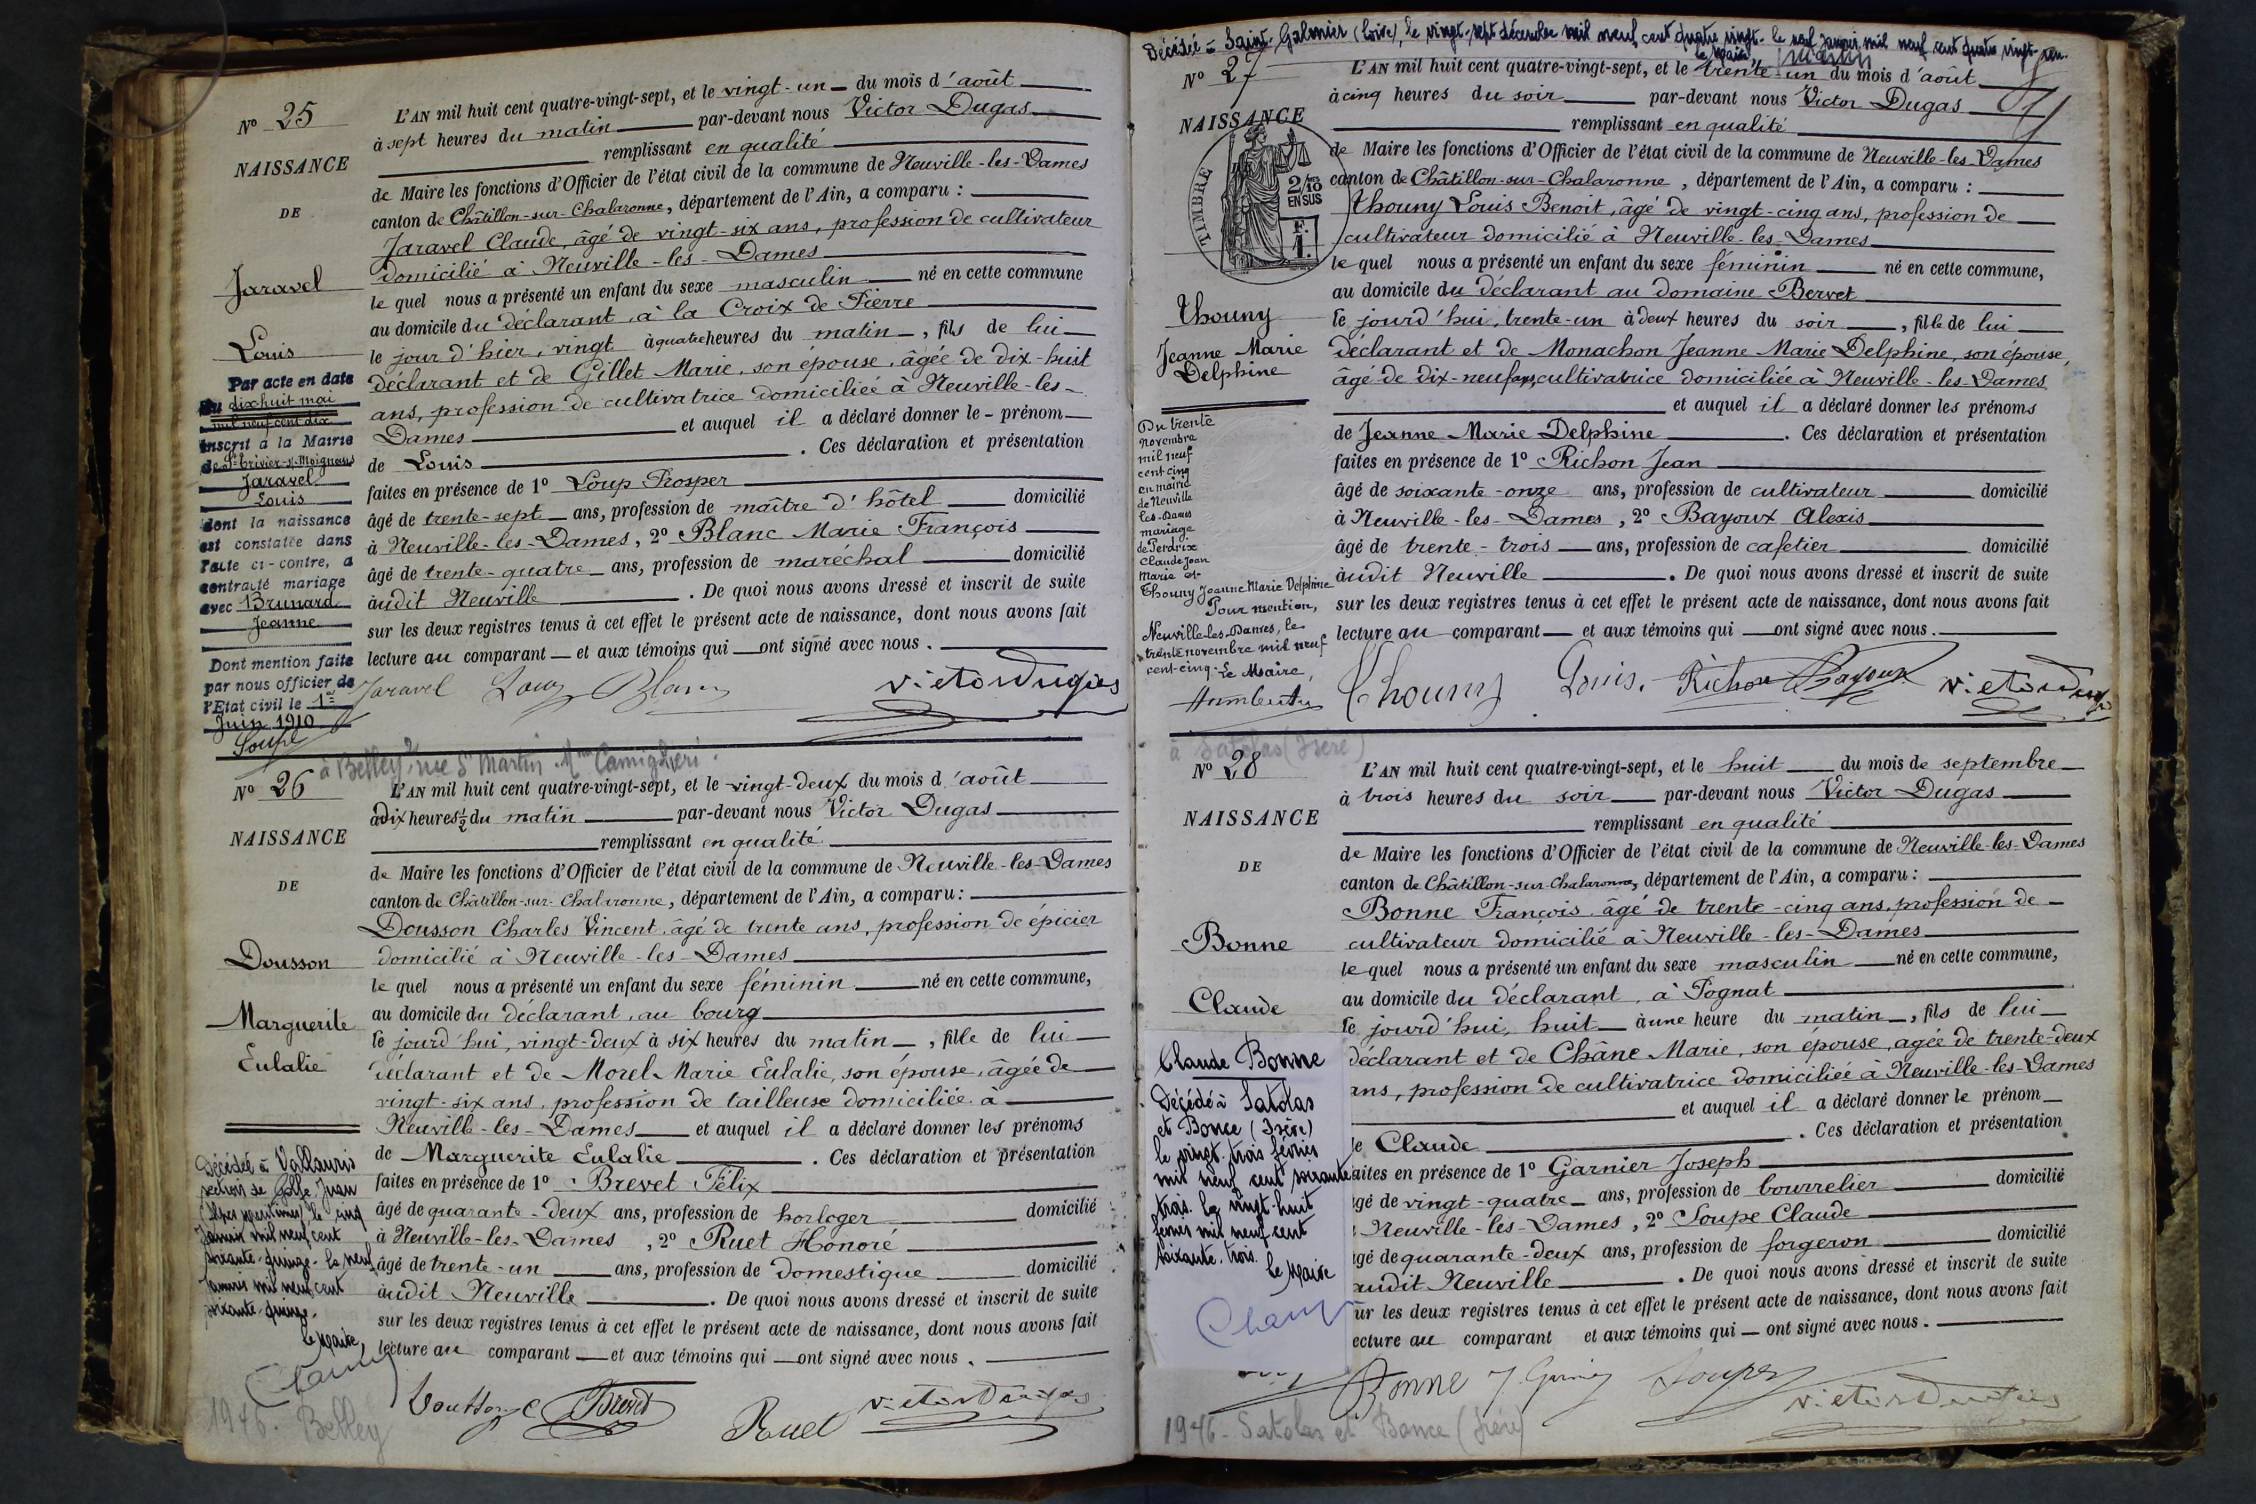 Nº 25
NAISSANCE
DE
Jaravel
Louis
Par acte en date
du dix huit mai
mil neuf cent dix
inscrit à la Mairie
de St-Trivier-s/-Moignans
Jaravel
Louis
dont la naissance
est constatée dans
l'acte ci-contre, a
contracté mariage
avec Brunard
Jeanne
Dont mention faite
par nous officier de
l'Etat civil le 1er
Juin 1910
Soupe
L'AN mil huit cent quatre-vingt-sept, et le vingt-un du mois d'août
à sept heures du matin par-devant nous Victor Dugas
remplissant en qualité
de Maire les fonctions d'Officier de l'état civil de la commune de Neuville-les-Dames
canton de Châtillon-sur-Chalaronne, département de l'Ain, a comparu :
Jaravel Claude, âgé de vingt-six ans, profession de cultivateur
domicilié à Neuville-les-Dames
le quel nous a présenté un enfant du sexe masculin né en cette commune
au domicile du déclarant, à la Croix de Pierre
le jour d'hier, vingt à quatre heures du matin, fils de lui
déclarant et de Gillet Marie, son épouse, âgée de dix-huit
ans, profession de cultivatrice domiciliée à Neuville-les-
Dames et auquel il a déclaré donner le prénom
de Louis. Ces déclaration et présentation
faites en présence de 1º Loup Prosper
âgé de trente-sept ans, profession de maître d'hôtel domicilié
à Neuville-les-Dames, 2º Blanc Marie François
âgé de trente-quatre ans, profession de maréchal domicilié
audit Neuville. De quoi nous avons dressé et inscrit de suite
sur les deux registres tenus à cet effet le présent acte de naissance, dont nous avons fait
lecture au comparant et aux témoins qui ont signé avec nous.
Jaravel Loup Blanc Victor Dugas
à Belley, rue St Martin. Mme
Nº 26
NAISSANCE
DE
Dousson
Marguerite
Eulalie
Décédée à Vallauris
section de Golfe-Juan
(Alpes maritimes) le cinq
Janvier mil neuf cent
soixante-quinze. Le neuf
Janvier mil neuf cent
soixante-quinze.
Le Maire,
L'AN mil huit cent quatre-vingt-sept, et le vingt-deux du mois d'août
à dix heures ½ du matin par-devant nous Victor Dugas
remplissant en qualité
de Maire les fonctions d'Officier de l'état civil de la commune de Neuville-les-Dames
canton de Châtillon-sur-Chalaronne, département de l'Ain, a comparu :
Dousson Charles Vincent, âgé de trente ans, profession de épicier
domicilié à Neuville-les-Dames
le quel nous a présenté un enfant du sexe féminin né en cette commune,
au domicile du déclarant, au bourg
le jourd'hui, vingt-deux à six heures du matin, fille de lui
déclarant et de Morel Marie Eulalie, son épouse, âgée de
vingt-six ans, profession de tailleuse domiciliée à
Neuville-les-Dames et auquel il a déclaré donner les prénoms
de Marguerite Eulalie. Ces déclaration et présentation
faites en présence de 1º Brevet Félix
âgé de quarante-deux ans, profession de horloger domicilié
à Neuville-les-Dames, 2º Ruet Honoré
âgé de trente-un ans, profession de domestique domicilié
audit Neuville. De quoi nous avons dressé et inscrit de suite
sur les deux registres tenus à cet effet le présent acte de naissance, dont nous avons fait
lecture au comparant et aux témoins qui ont signé avec nous.
Brevet Ruet Victor Dugas
1946. Belley
Décédée à Saint-Galmier (Loire), le vingt-sept décembre mil neuf cent quatre vingt. Le neuf janvier mil neuf cent quatre vingt-un.
Le Maire,
Nº 27
NAISSANCE
TIMBRE
2/10 EN SUS
F. 1.
Thouny
Jeanne Marie
Delphine
Du trente
novembre
mil neuf
cent cinq
en mairie
de Neuville
les-Dames
mariage
de Perdrix
Claude Jean
Marie et
Thouny Jeanne Marie Delphine
Pour mention,
Neuville-les-Dames, le
trente novembre mil neuf
cent-cinq. Le Maire,
L'AN mil huit cent quatre-vingt-sept, et le trente-un du mois d'août
à cinq heures du soir par-devant nous Victor Dugas
remplissant en qualité
de Maire les fonctions d'Officier de l'état civil de la commune de Neuville-les-Dames
canton de Châtillon-sur-Chalaronne, département de l'Ain, a comparu :
Thouny Louis Benoit, âgé de vingt-cinq ans, profession de
cultivateur domicilié à Neuville-les-Dames
le quel nous a présenté un enfant du sexe féminin né en cette commune,
au domicile du déclarant au domaine Bervet
le jourd'hui, trente-un à deux heures du soir, fille de lui
déclarant et de Monachon Jeanne Marie Delphine, son épouse,
âgé de dix-neuf ans, cultivatrice domiciliée à Neuville-les-Dames
et auquel il a déclaré donner les prénoms
de Jeanne Marie Delphine. Ces déclaration et présentation
faites en présence de 1º Richon Jean
âgé de soixante-onze ans, profession de cultivateur domicilié
à Neuville-les-Dames, 2º Bayoux Alexis
âgé de trente-trois ans, profession de cafetier domicilié
audit Neuville. De quoi nous avons dressé et inscrit de suite
sur les deux registres tenus à cet effet le présent acte de naissance, dont nous avons fait
lecture au comparant et aux témoins qui ont signé avec nous.
Thouny Louis. Richon Bayoux Victor Dugas
à Satolas (Isère)
Nº 28
NAISSANCE
DE
Bonne
Claude
Claude Bonne
Décédé à Satolas
et Bonce (Isère)
le vingt-trois février
mil neuf cent soixante
trois. Le vingt-huit
février mil neuf cent
soixante-trois.
Le Maire
L'AN mil huit cent quatre-vingt-sept, et le huit du mois de septembre
à trois heures du soir par-devant nous Victor Dugas
remplissant en qualité
de Maire les fonctions d'Officier de l'état civil de la commune de Neuville-les-Dames
canton de Châtillon-sur-Chalaronne, département de l'Ain, a comparu :
Bonne François, âgé de trente-cinq ans, profession de
cultivateur domicilié à Neuville-les-Dames
le quel nous a présenté un enfant du sexe masculin né en cette commune,
au domicile du déclarant, à Pognat
le jourd'hui, huit à une heure du matin, fils de lui
déclarant et de Châne Marie, son épouse, agée de trente-deux
ans, profession de cultivatrice domiciliée à Neuville-les-Dames
et auquel il a déclaré donner le prénom
de Claude. Ces déclaration et présentation
faites en présence de 1º Garnier Joseph
âgé de vingt-quatre ans, profession de bourrelier domicilié
à Neuville-les-Dames, 2º Soupe Claude
âgé de quarante-deux ans, profession de forgeron domicilié
audit Neuville. De quoi nous avons dressé et inscrit de suite
sur les deux registres tenus à cet effet le présent acte de naissance, dont nous avons fait
lecture au comparant et aux témoins qui ont signé avec nous.
Bonne Soupe Victor Dugas
1946 - Satolas et Bonce (Isère)